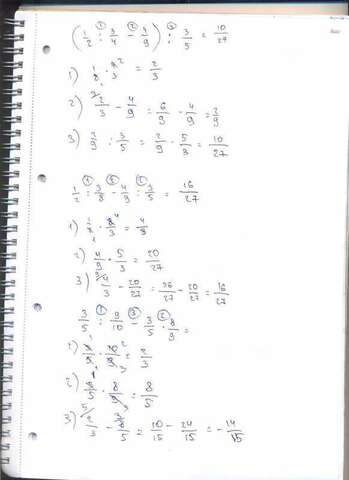 (1/2 : 3/4 - 4/9) : 3/5 = 10/27
1) 1/2 · 4/3 = 2/3
2) 2/3 - 4/9 = 6/9 - 4/9 = 2/9
3) 2/9 : 3/5 = 2/9 · 5/3 = 10/27
1/2 : 3/8 - 4/9 : 3/5 = 16/27
1) 1/2 · 8/3 = 4/3
2) 4/9 · 5/3 = 20/27
3) 4/3 - 20/27 = 36/27 - 20/27 = 16/27
3/5 : 9/10 - 3/5 · 8/3 =
2/3
8/5
3) 2/3 - 8/5 = 10/15 - 24/15 = - 14/15